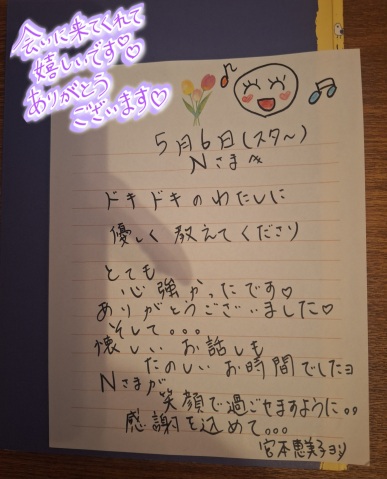 会いに来てくれて
嬉しいです♡
ありがとう
ございます♡
5月6日(スタ〜)
Nさまへ
ドキドキのわたしに
優しく教えてくださり
とても
心強かったです♡
ありがとうございました♡
そして。。。
懐しいお話しも
たのしいお時間でしたヨ
Nさまが
笑顔で過ごせますように。。
感謝を込めて。。。
宮本恵美子ヨリ